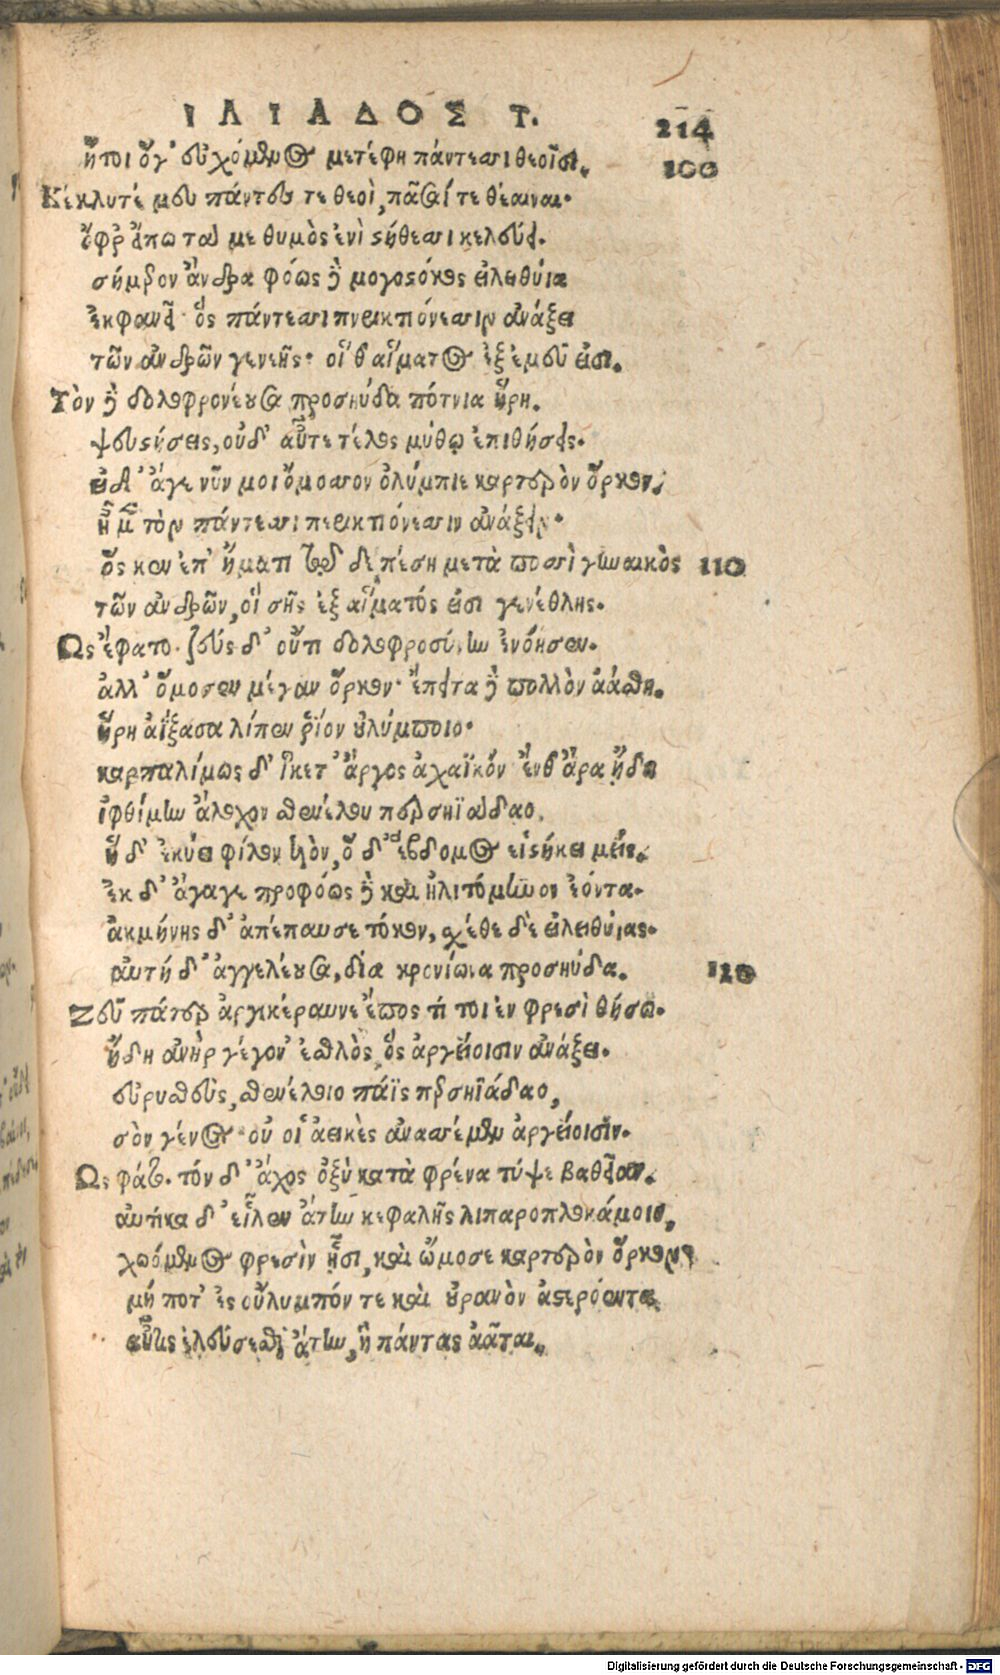 ΙΛΙΑΔΟΣ Τ. 214
ἤτοι ὅγ' εὐχόμενος μετέφη πάντεσσι θεοῖσι. 100
Κέκλυτέ μευ πάντές τε θεοὶ, πᾶσαί τε θέαιναι·
ὄφρ' εἴπω τά με θυμὸς ἐνὶ στήθεσσι κελεύει.
σήμερον ἄνδρα φόως δὲ μογοστόκος εἰλειθύια
ἐκφανεῖ· ὃς πάντεσσι περικτιόνεσσιν ἀνάξει
τῶν ἀνδρῶν γενεῆς· οἵ θ' αἵματος ἐξ ἐμεῦ εἰσι.
Τὸν δὲ δολοφρονέουσα προσηύδα πότνια ἥρη.
ψευστήσεις, οὐδ' αὖτε τέλος μύθῳ ἐπιθήσεις·
εἰ δ' ἄγε νῦν μοι ὄμοσσον ὀλύμπιε καρτερὸν ὅρκον,
ἦ μὲν τὸν πάντεσσι περικτιόνεσσιν ἀνάξειν·
ὅς κεν ἐπ' ἤματι τῷδε πέσῃ μετὰ ποσσὶ γυναικὸς 110
τῶν ἀνδρῶν, οἳ σῆς ἐξ αἵματός εἰσι γενέθλης.
Ως ἔφατο· ζεύς δ' οὔτι δολοφροσύνην ἐνόησεν.
ἀλλ' ὄμοσεν μέγαν ὅρκον· ἔπειτα δὲ πολλὸν ἀάσθη.
ἥρη ἀΐξασα λίπεν ῥίον οὐλύμποιο·
καρπαλίμως δ' ἵκετ' ἄργος ἀχαϊκόν· ἔνθ' ἄρα ᾔδη
ἰφθίμην ἄλοχον σθενέλου περσηϊάδαο.
ἣ δ' ἐκύει φίλον υἱὸν, ὁ δ' ἕβδομος εἱστήκει μείς.
ἐκ δ' ἄγαγε προφόως δὲ καὶ ἠλιτόμηνον ἐόντα·
ἀκμήνης δ' ἀπέπαυσε τόκον, σχέθε δὲ εἰλειθύιας.
αὐτὴ δ' ἀγγελέουσα, δία κρονίωνα προσηύδα. 120
Ζεῦ πάτερ ἀργικέραυνε ἔπος τί τοι ἐν φρεσὶ θήσω.
ἤδη ἀνὴρ γέγον' ἐσθλὸς, ὃς ἀργείοισιν ἀνάξει.
εὐρυσθεὺς, σθενέλοιο πάϊς περσηϊάδαο,
σὸν γένος· οὔ οἱ ἀεικὲς ἀνασσέμεν ἀργείοισιν.
Ως φάτο. τὸν δ' ἄχος ὀξὺ κατὰ φρένα τύψε βαθεῖαν.
αὐτίκα δ' εἷλεν ἄτην κεφαλῆς λιπαροπλοκάμοιο,
χωόμενος φρεσὶν ᾗσι, καὶ ὤμοσε καρτερὸν ὅρκον,
μή ποτ' ἐς οὔλυμπόν τε καὶ οὐρανὸν ἀστερόεντα,
αὖτις ἐλεύσεσθαι ἄτην, ἣ πάντας ἀᾶται.
Digitalisierung gefördert durch die Deutsche Forschungsgemeinschaft - DFG